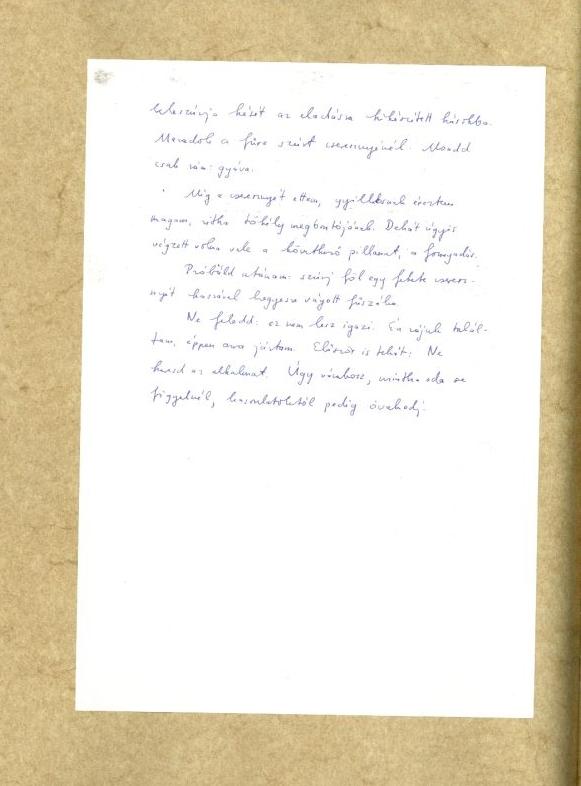 kezét az eladásra kikészített húsokba.
Maradok a fűre szórt cseresznyénél. Mondd
csak rám: gyáva.
Míg a cseresznyét ettem, gyilkosnak éreztem
magam, ritka tökély megbontójának. Dehát úgyis
végzett volna vele a következő pillanat, a fonnyadás.
Próbáld utánam: szúrj föl egy fekete cseresz-
nyét hosszával hegyesre vágott fűszálra.
Ne feledd: ez nem lesz igazi. Én rájuk talál-
tam, éppen arra jártam. Először is tehát: Ne
keresd az alkalmat. Úgy várakozz, mintha oda se
figyelnél, hasonlatoktól pedig óvakodj.